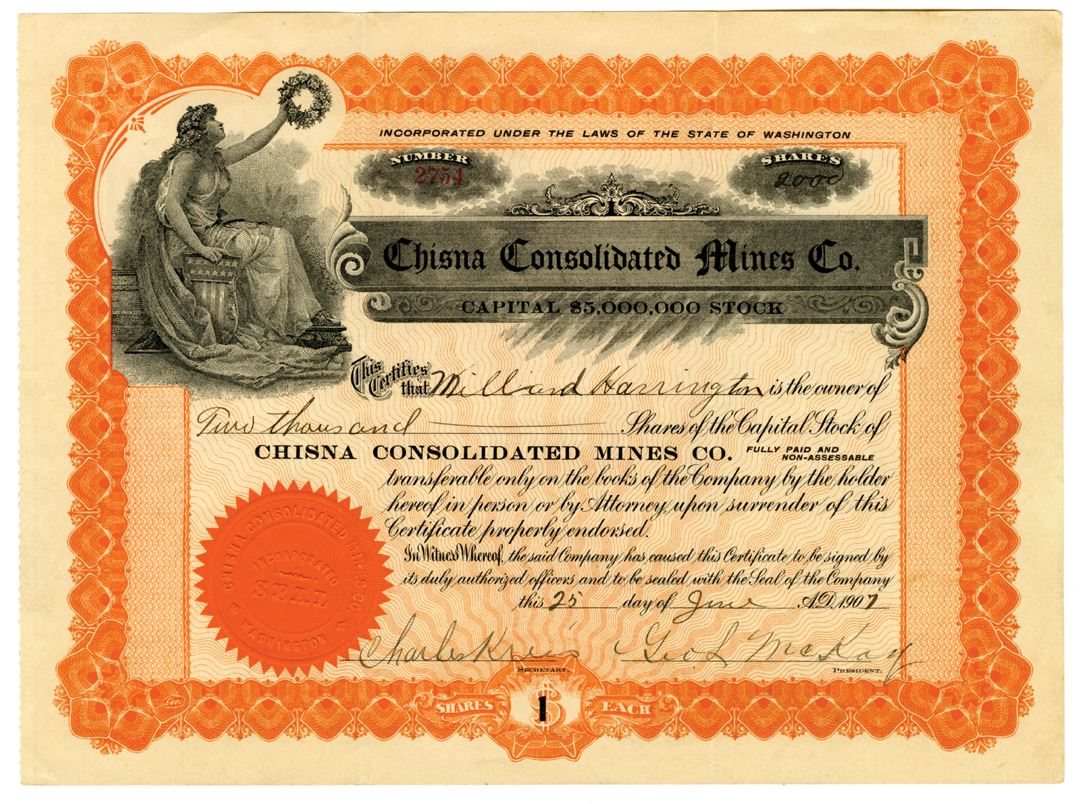 INCORPORATED UNDER THE LAWS OF THE STATE OF WASHINGTON
NUMBER
2754
SHARES
2000
Chisna Consolidated Mines Co.
CAPITAL $5,000,000 STOCK
This Certifies that Millard Harrington is the owner of
Two thousand Shares of the Capital Stock of
CHISNA CONSOLIDATED MINES CO. FULLY PAID AND NON-ASSESSABLE
transferable only on the books of the Company by the holder
hereof in person or by Attorney, upon surrender of this
Certificate properly endorsed.
In Witness Whereof, the said Company has caused this Certificate to be signed by
its duly authorized officers and to be sealed with the Seal of the Company
this 25 day of June A.D. 1907
CHISNA CONSOLIDATED MINES CO.
INCORPORATED
SEAL
WASHINGTON
Charles Geo. L McKay
SECRETARY. PRESIDENT.
SHARES $1 EACH